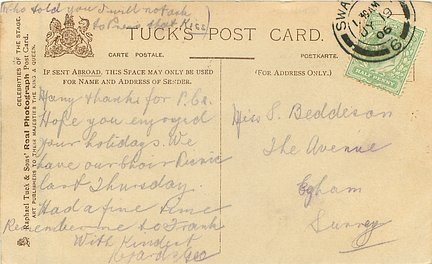 Who told you I will not ask
to Phone that Kiss
TUCK'S POST CARD.
CARTE POSTALE.
POSTKARTE.
IF SENT ABROAD, THIS SPACE MAY ONLY BE USED
FOR NAME AND ADDRESS OF SENDER.
(FOR ADDRESS ONLY.)
CELEBRITIES OF THE STAGE.
Raphael Tuck & Sons' Real Photograph Post Card.
ART PUBLISHERS TO THEIR MAJESTIES THE KING & QUEEN.
Many thanks for P.Cs.
Hope you enjoyed
your holidays. We
have our Choir Picnic
last Thursday
Had a fine time
Remember me to Frank
With Kindest
Regards Geo
Miss S. Beddeson
The Avenue
Egham
Surrey
SWA
JY 19
06